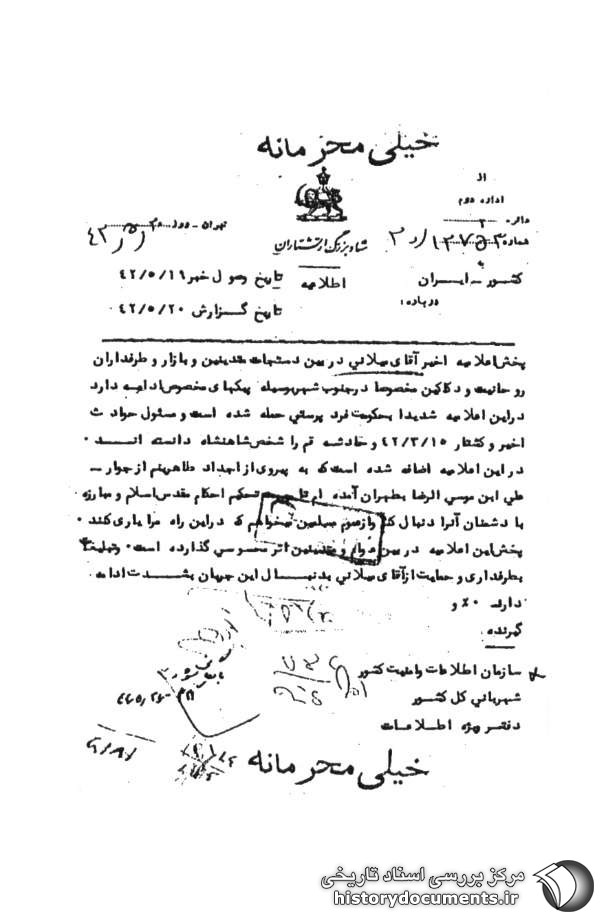 خیلی محرمانه
از
اداره دوم
دائره ۲
شماره
تهران - روز
ستاد بزرگ ارتشتاران
به
کشور - ایران
اطلاعیه
تاریخ وصول خبر ۴۲/۵/۱۹
درباره:
تاریخ گزارش ۴۲/۵/۲۰
پخش اعلامیه اخیر آقای میلانی در بین دستجات متدینین و بازار و طرفداران
روحانیت و دکاکین مخصوصا در جنوب شهر بوسیله پیکهای مخصوص ادامه دارد
در این اعلامیه شدیدا بحکومت فرد پرستی حمله شده است و مسئول حوادث
اخیر و کشتار ۴۲/۳/۱۵ و حادثه قم را شخص شاهنشاه دانسته اند.
در این اعلامیه اضافه شده است که به پیروی از اجداد طاهرینم از جوار -
علی ابن موسی الرضا بطهران آمده ام تا تحکیم احکام مقدس اسلام و مبارزه
با دشمنان آنرا دنبال کنم و از عموم مسلمین میخواهم که در این راه مرا یاری کنند.
پخش این اعلامیه در بین عوام و متدینین اثر محسوسی گذارده است. و تبلیغا
بطرفداری و حمایت از آقای میلانی بدنبال این جریان بشدت ادامه
دارد. ۰٪ و
گیرنده
سازمان اطلاعات و امنیت کشور
شهربانی کل کشور
دفتر ویژه اطلاعات
خیلی محرمانه
مرکز بررسی اسناد تاریخی
historydocuments.ir